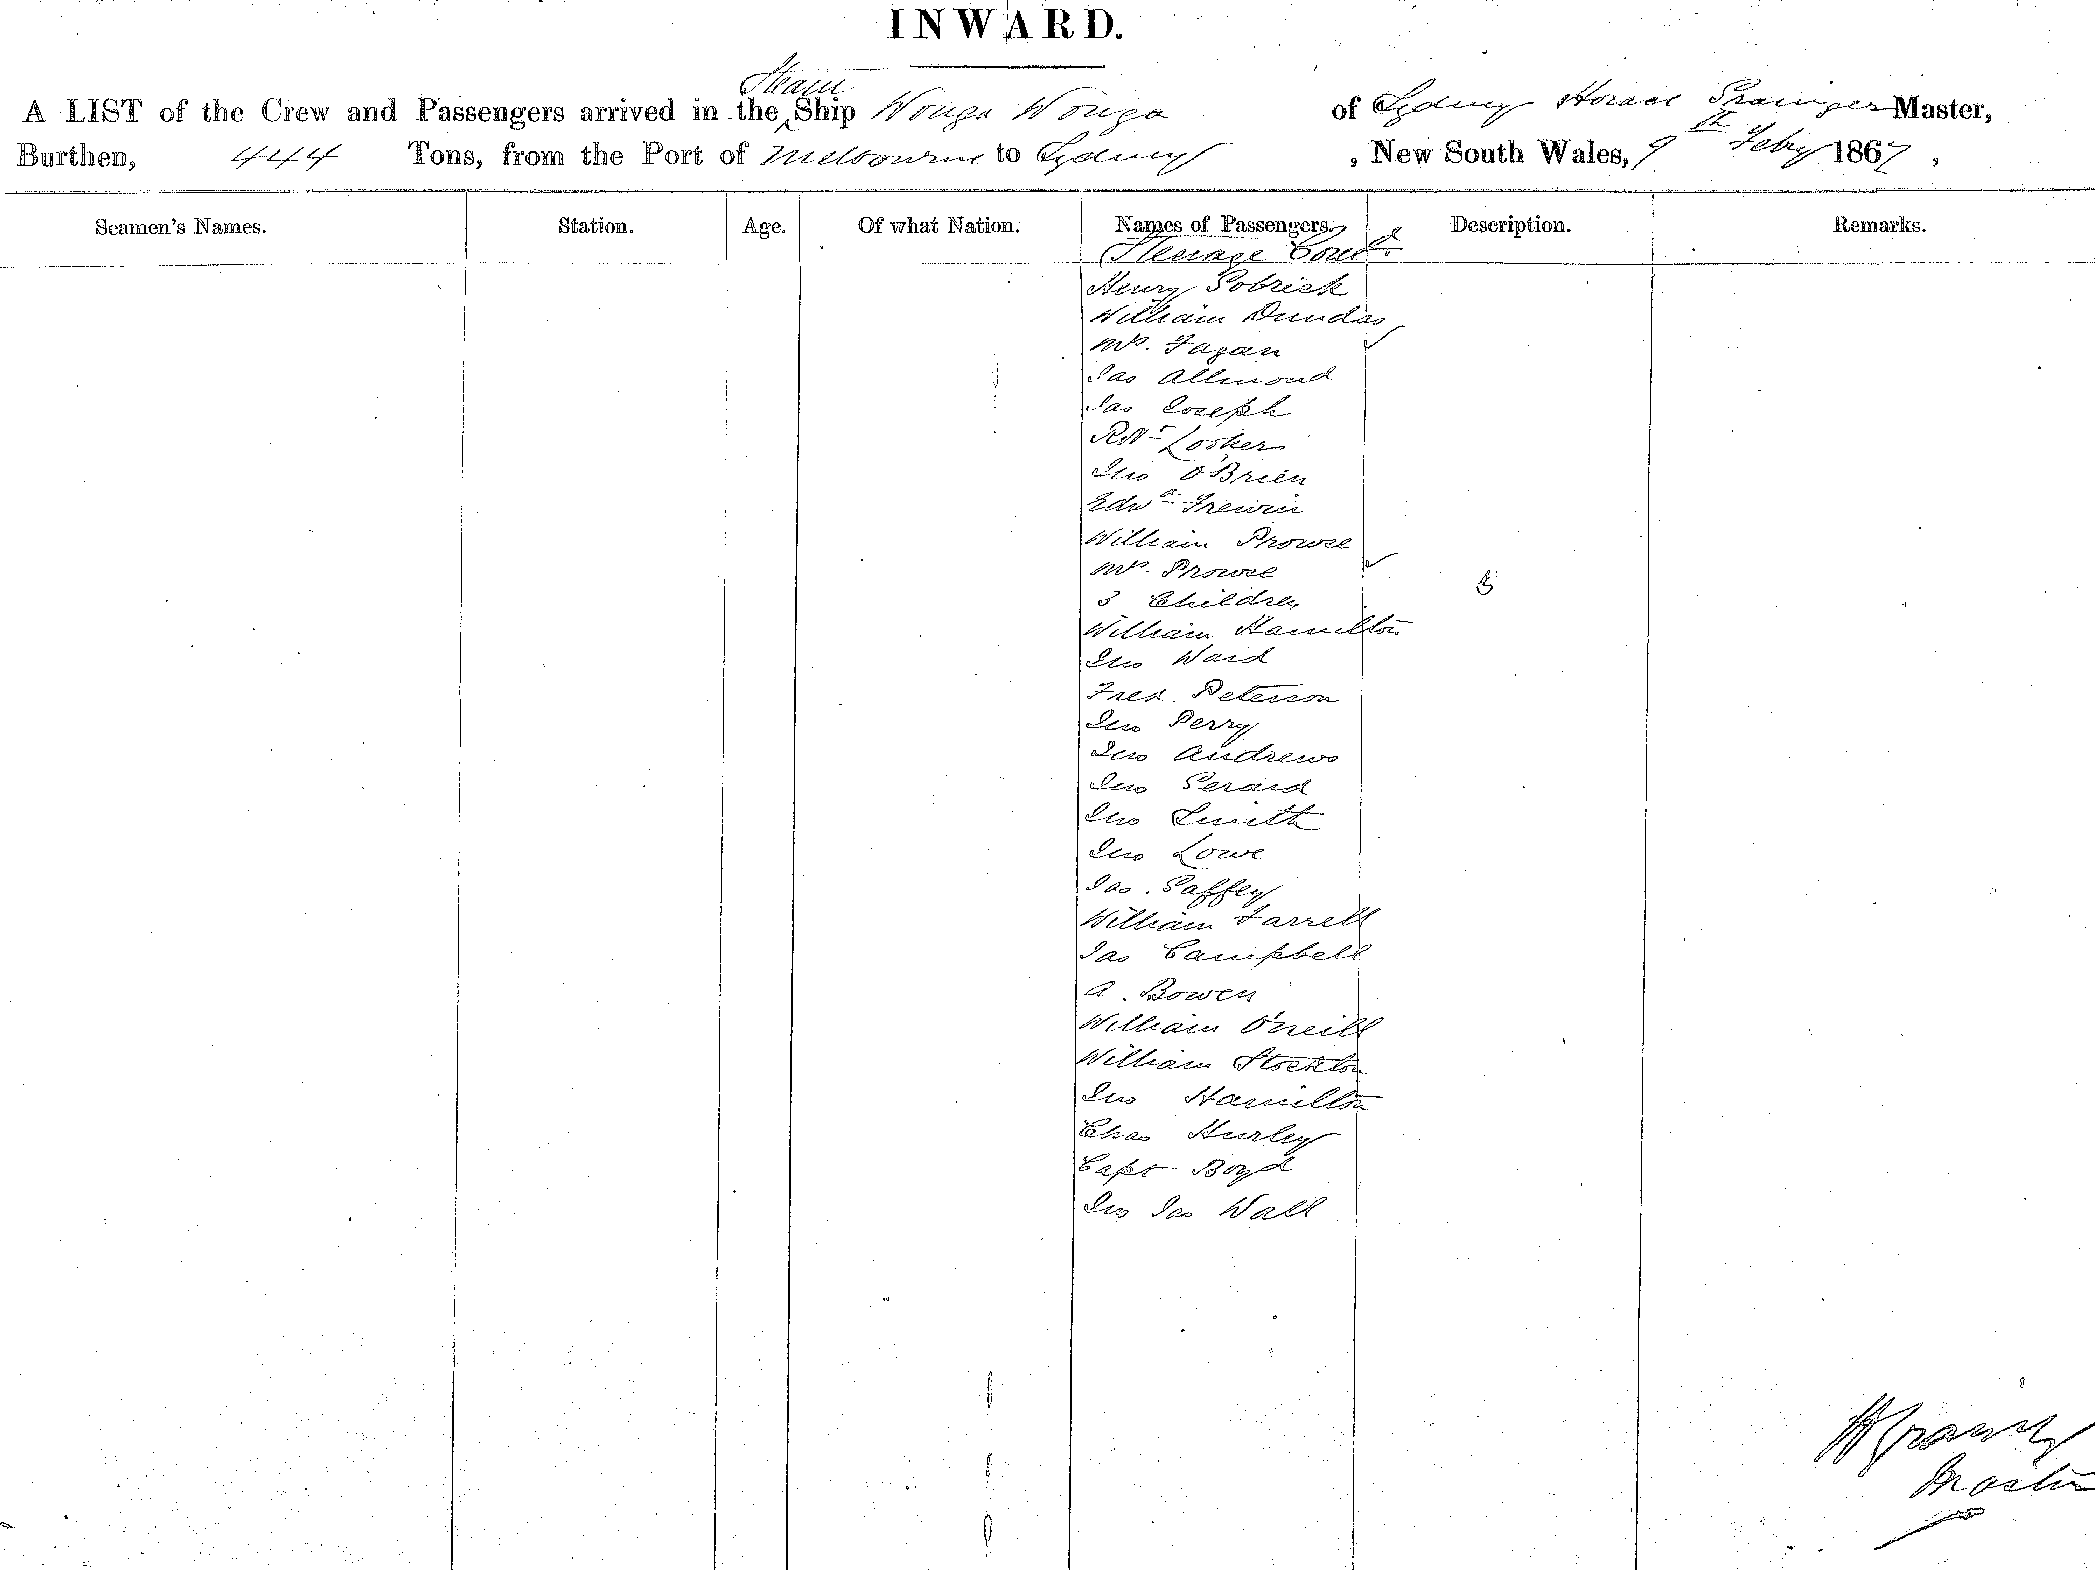 INWARD.
A LIST of the Crew and Passengers arrived in the Steam Ship Wonga Wonga of Sydney Horace Grainger Master,
Burthen, 444 Tons, from the Port of Melbourne to Sydney, New South Wales, 9th Febry 1867,
Seamen's Names. Station. Age. Of what Nation. Names of Passengers. Description. Remarks.
Steerage Contd.
Henry
William Dundas
Mrs. Fagan
Jas Allmond
Jas Joseph
Robt Looker
Jno O'Brien
Edwd Trewin
William Prowse
Mrs. Prowse
3 Children 3
William Hamilton
Jno Ward
Fred. Peterson
Jno Perry
Jno Andrews
Jno Gerard
Jno Smith
Jno Lowe
Jas. Gaffey
William Farrell
Jas Campbell
A. Bowen
William O'Neill
William Stockton
Jno Hamilton
Chas Hurley
Capt Boyd
Jno Jas Wall
H Grainger
Master